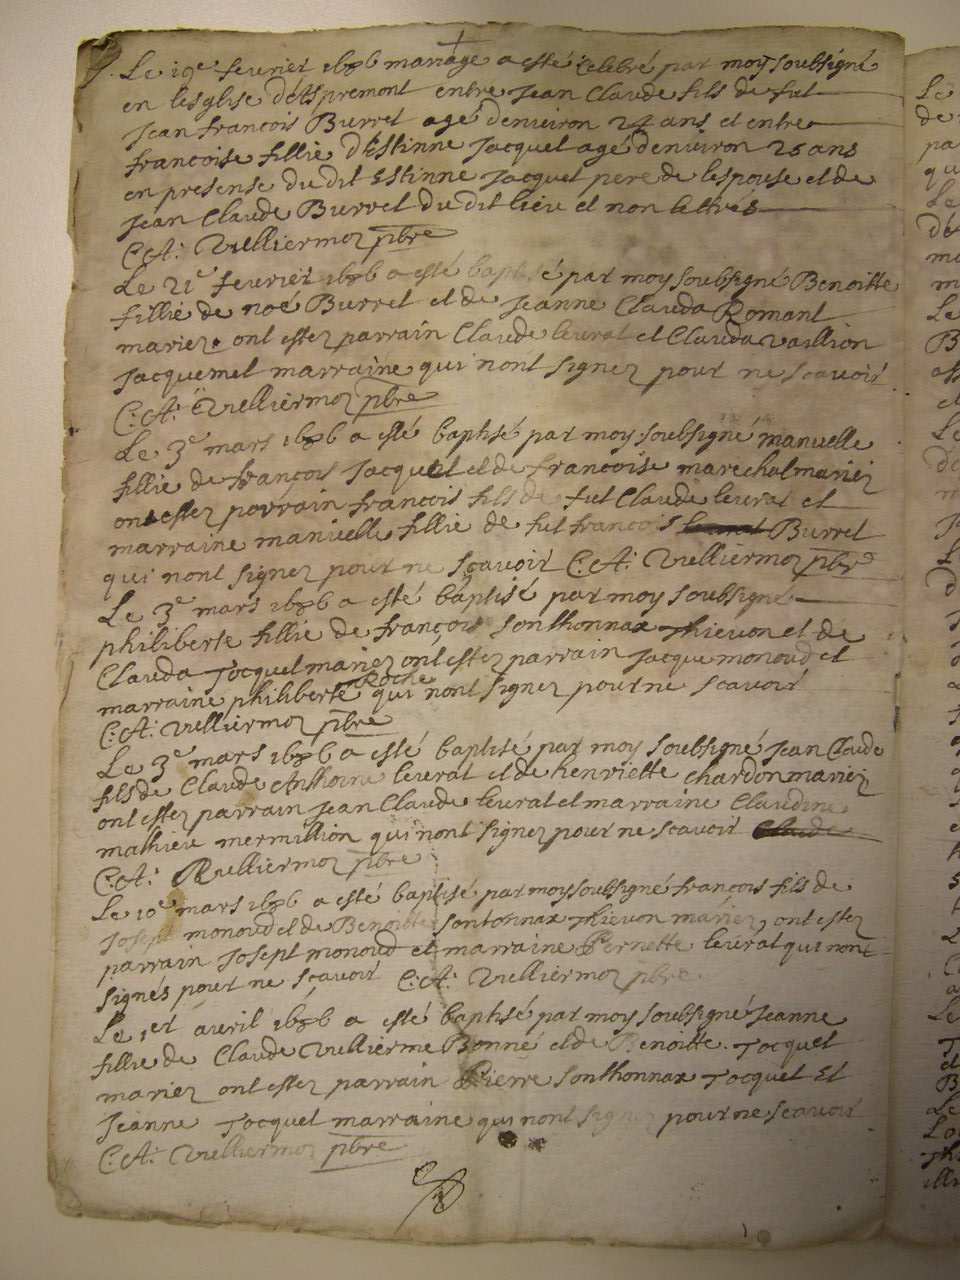 Le 19e fevrier 1686 mariage a esté celebré par moy soubsigné
en lesglise d'Espremont entre jean Claude fils de fut
jean françois Burret agé denviron 24 ans et entre
francoise fillie d'Estinne jacquet agé denviron 25 ans
en presense du dit Estinne jacquet pere de lespouse et de
jean Claude Burret du dit lieu et non lettrés
C: A: Vulliermoz pbre
Le 21e fevrier 1686 a esté baptisé par moy soubsigné Benoitte
fillie de noé Burret et de jeanne Clauda Romant
mariez ont estez parrain Claude levrat et Clauda vaillion
jacquemet marraine qui nont signez pour ne scavoir
C: A: Vulliermoz pbre
Le 3e mars 1686 a esté baptisé par moy soubsigné manuelle
fillie de françois jacquet et de francoise marechal mariez
ont estez parrain francois fils de fut Claude levrat et
marraine manuelle fillie de fut francois Burret
qui nont signez pour ne scavoir C: A: Vulliermoz pbre
Le 3e mars 1686 a esté baptisé par moy soubsigné
philiberte fillie de françois sonthonnax thievon et de
Clauda Tocquet mariez ont estez parrain jacque monoud et
marraine philiberte Roche qui nont signez pour ne scavoir
C: A: Vulliermoz pbre
Le 3e mars 1686 a esté baptisé par moy soubsigné jean Claude
fils de Claude Anthoine levrat et de henriette chardon mariez
ont estez parrain jean Claude levrat et marraine Claudine
mathieu mermillion qui nont signez pour ne scavoir
C: A: Vulliermoz pbre
Le 10e mars 1686 a esté baptisé par moy soubsigné françois fils de
Joseph monoud et de Benoitte sontonnax thievon mariez, ont estez
parrain Joseph monoud et marraine Pernette levrat qui nont
signés pour ne scavoir C: A: Vulliermoz pbre.
Le 1er avril 1686 a esté baptisé par moy soubsigné jeanne
fillie de Claude Vullierme Bonné et de Benoitte Tocquet
mariez ont estez parrain Pierre sonthonnax Tocquet Et
jeanne Tocquet marraine qui nont signez pour ne scavoir
C: A: Vulliermoz pbre